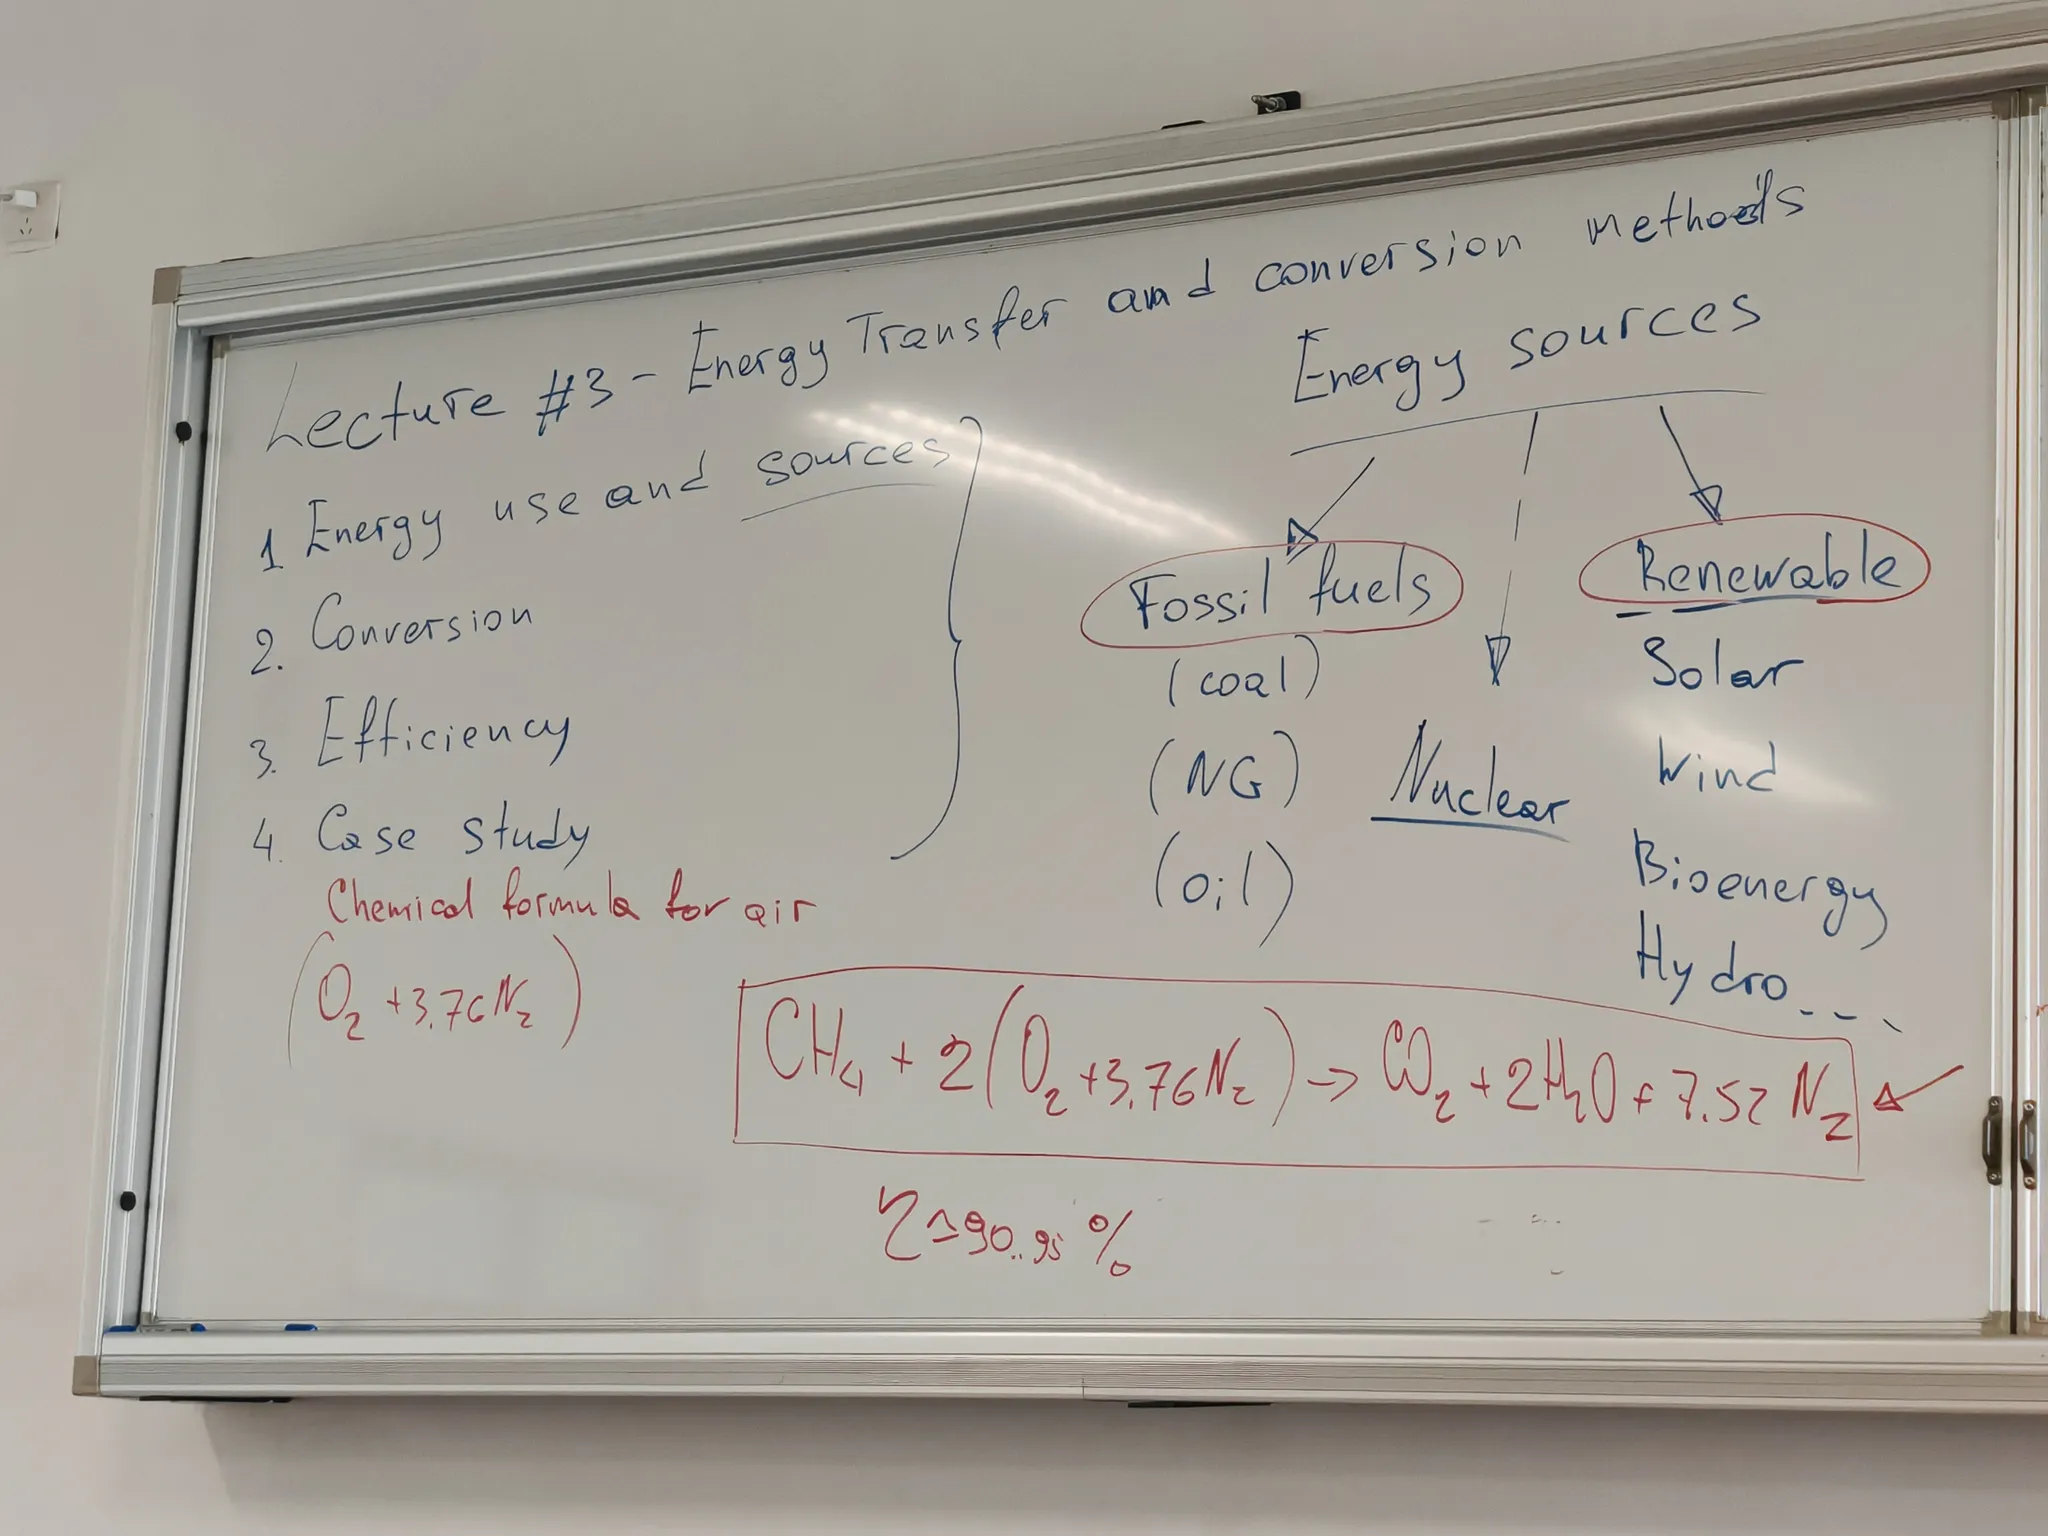 Lecture #3 - Energy Transfer and conversion methods
1 Energy use and sources
2. Conversion
3. Efficiency
4. Case study
Chemical formula for air
(O₂ + 3.76N₂)
Energy sources
Fossil fuels
(coal)
(NG)
(oil)
Nuclear
Renewable
Solar
Wind
Bioenergy
Hydro...
CH₄ + 2(O₂ + 3.76N₂) → CO₂ + 2H₂O + 7.52 N₂
η ≃ 90..95 %